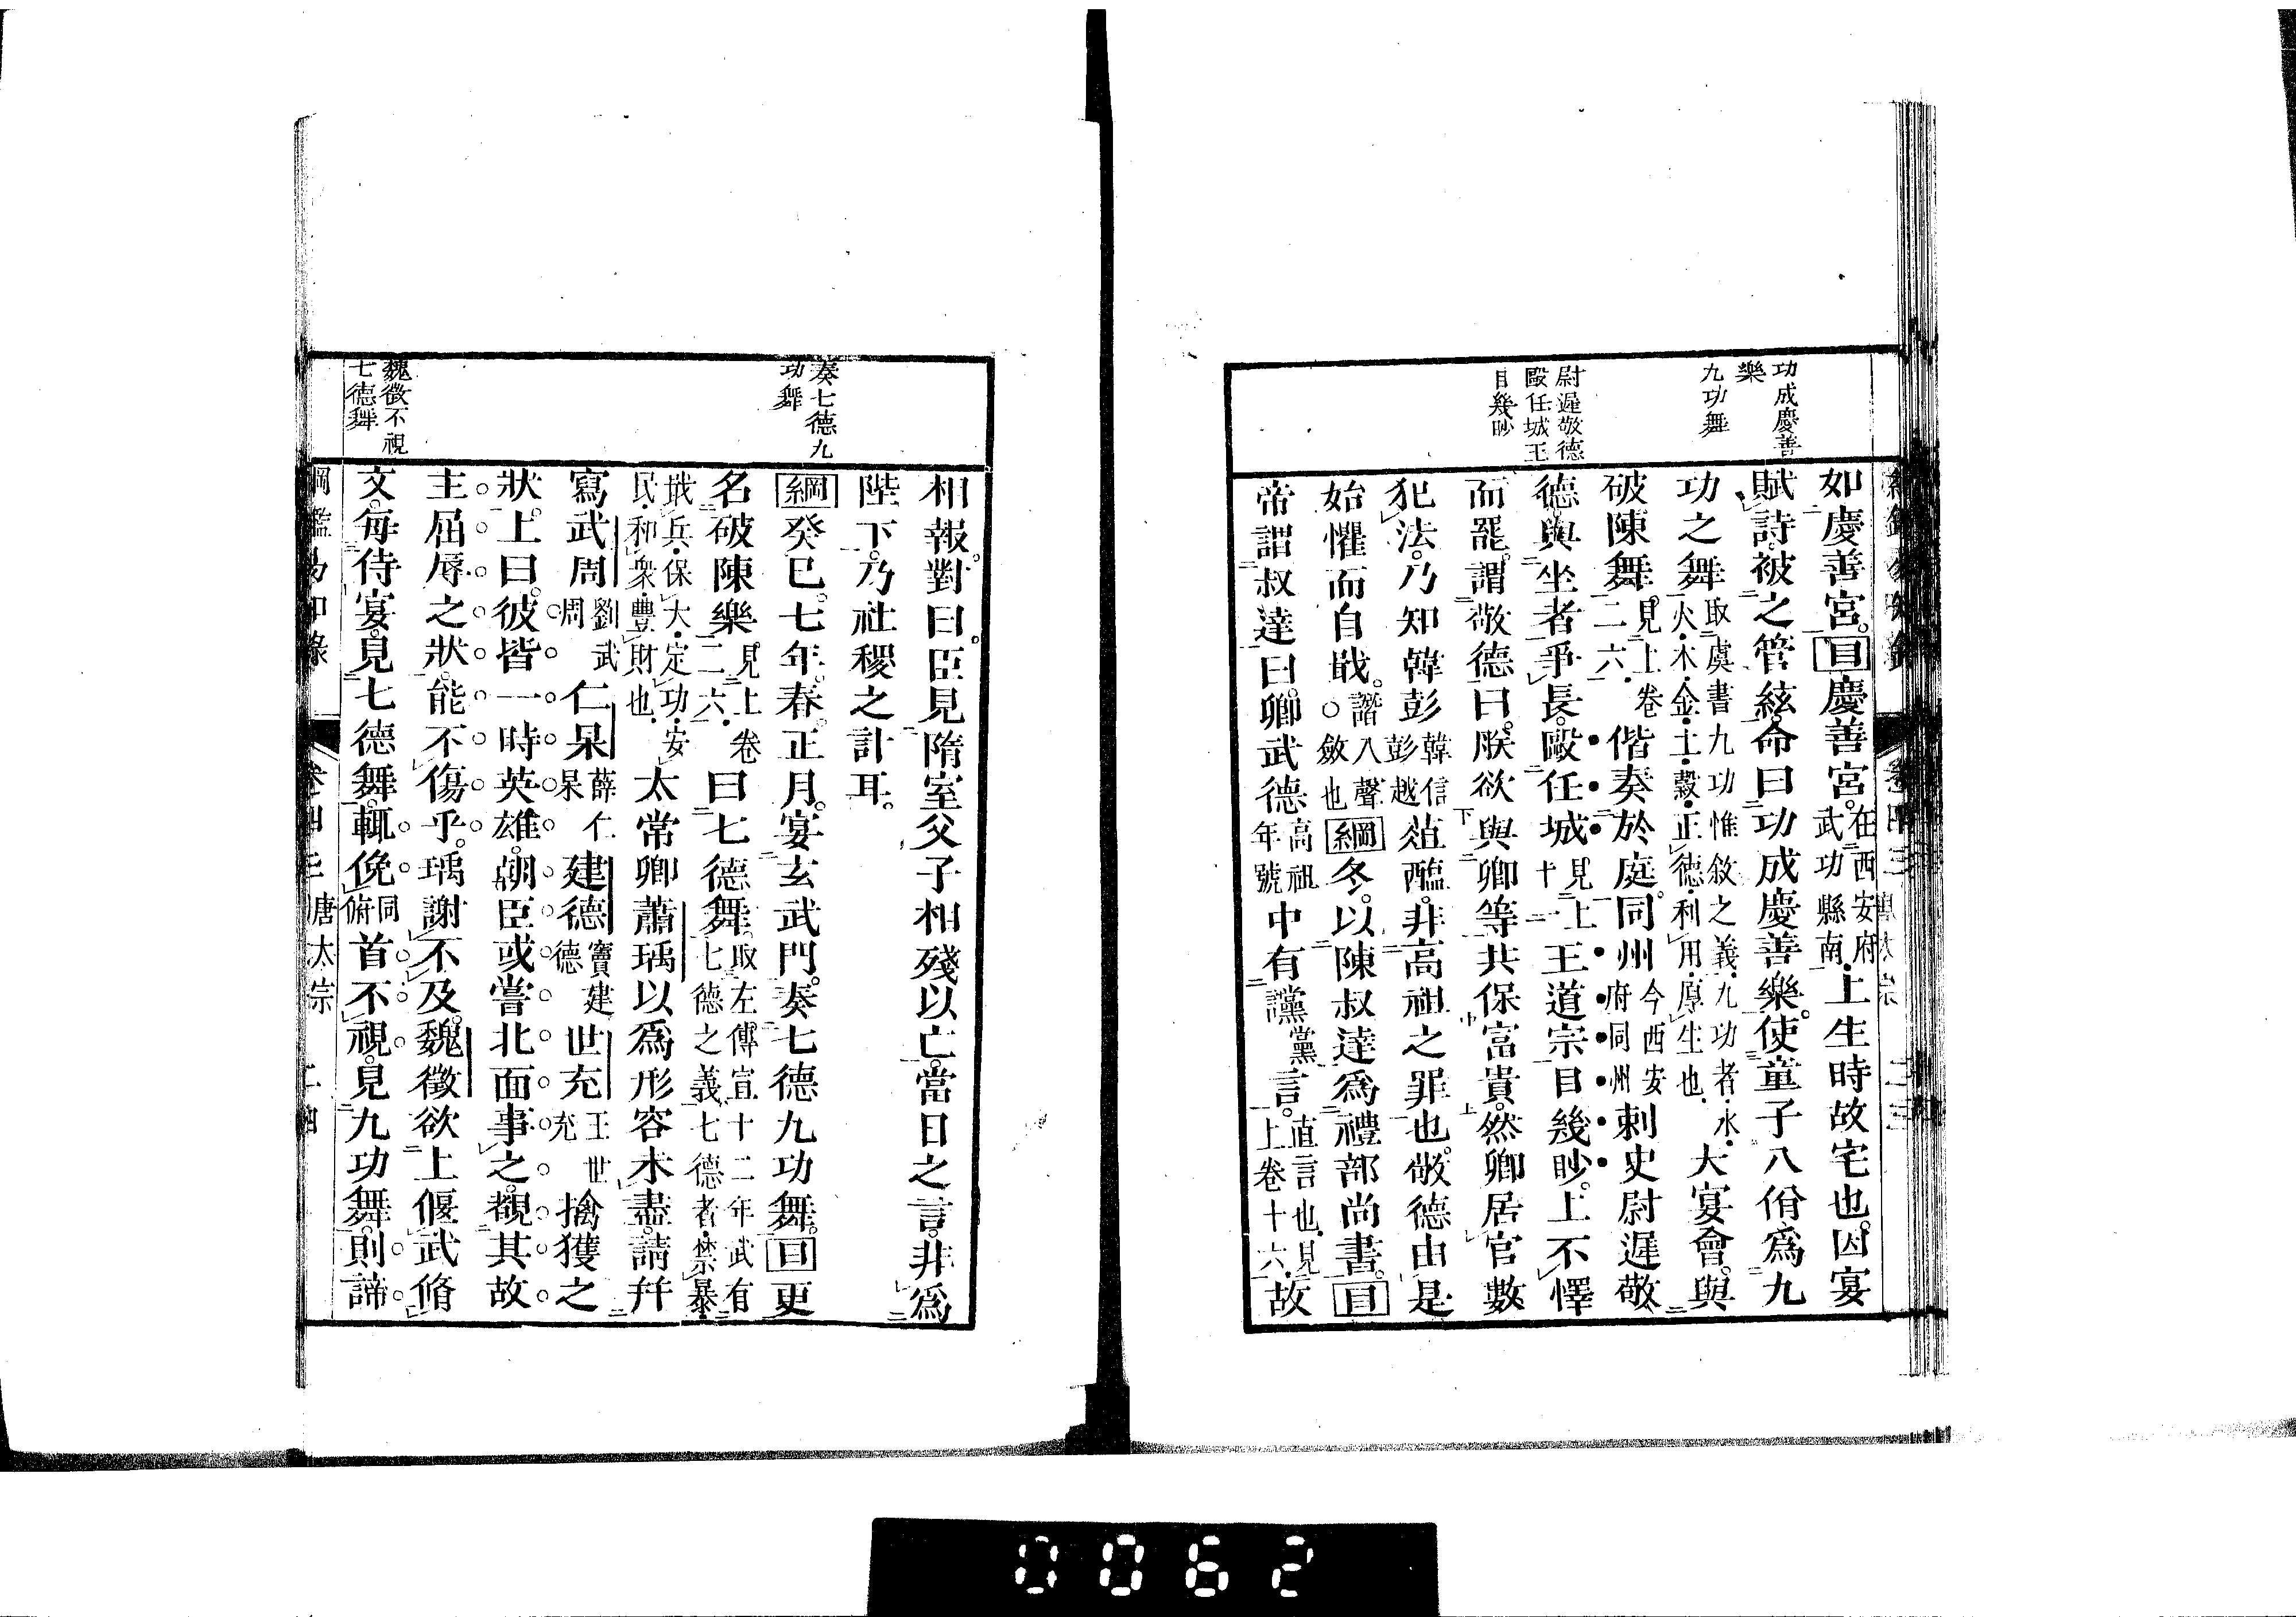 功成慶善
樂
九功舞
尉遲敬德
毆任城王
目幾眇
如慶善宮。目慶善宮。在西安府武功縣南。上生時故宅也。因宴
賦詩。被之管絃。命曰功成慶善樂。使童子八佾爲九
功之舞。取虞書九功惟敘之義。九功者。水・火・木・金・土・穀・正德・利用・厚生也。大宴會。與
破陳舞。見上卷二六。偕奏於庭。同州今西安府同州刺史尉遲敬
德。與坐者爭長。毆任城見上十一王道宗。目幾眇。上不懌
而罷。謂敬德曰。朕欲與卿等共保富貴。然卿居官數
犯法。乃知韓彭韓信彭越葅醢。非高祖之罪也。敬德由是
始懼而自戢。諧八聲○斂也綱冬。以陳叔達爲禮部尚書。目
帝謂叔達曰。卿武德高祖年號中有讜黨言。直言也。見上卷十六。故
卷四三
奏七德九
功舞
魏徵不視
七德舞
相報。對曰。臣見隋室父子相殘以亡。當日之言。非爲
陛下。乃社稷之計耳。
綱癸巳。七年。春。正月。宴玄武門。奏七德九功舞。目更
名破陳樂見上卷二六。曰七德舞。取左傳宣十二年武有七德之義。七德者。禁暴・
戢兵・保大・定功・安民・和衆・豐財也。太常卿蕭瑀以爲形容未盡。請幷
寫武周劉武周仁杲薛仁杲建德竇建德世充王世充擒獲之
狀。上曰。彼皆一時英雄。朝臣或嘗北面事之。覩其故
主屈辱之狀。能不傷乎。瑀謝不及。魏徵欲上偃武脩
文。每侍宴。見七德舞。輒俛同俯首不視。見九功舞。則諦
綱鑑易知錄 卷四三 唐太宗 二四
0062